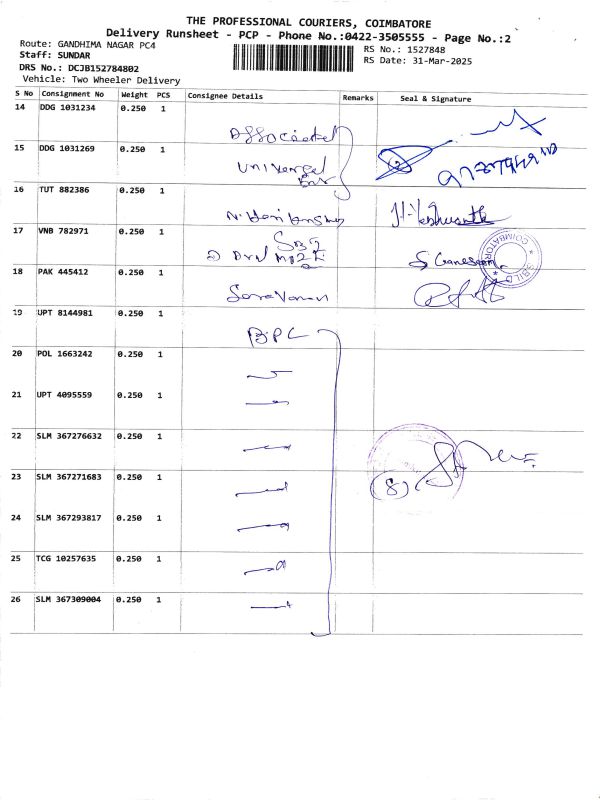 THE PROFESSIONAL COURIERS, COIMBATORE
Delivery Runsheet - PCP - Phone No.:0422-3505555 - Page No.:2
Route: GANDHIMA NAGAR PC4
Staff: SUNDAR
DRS No.: DCJB152784802
Vehicle: Two Wheeler Delivery
RS No.: 1527848
RS Date: 31-Mar-2025
S No Consignment No Weight PCS Consignee Details Remarks Seal & Signature
14 DDG 1031234 0.250 1
15 DDG 1031269 0.250 1 Universal
16 TUT 882386 0.250 1
17 VNB 782971 0.250 1
18 PAK 445412 0.250 1 Saravanan
19 UPT 8144981 0.250 1 BPCL
20 POL 1663242 0.250 1
21 UPT 4095559 0.250 1
22 SLM 367276632 0.250 1
23 SLM 367271683 0.250 1 (8)
24 SLM 367293817 0.250 1
25 TCG 10257635 0.250 1
26 SLM 367309004 0.250 1